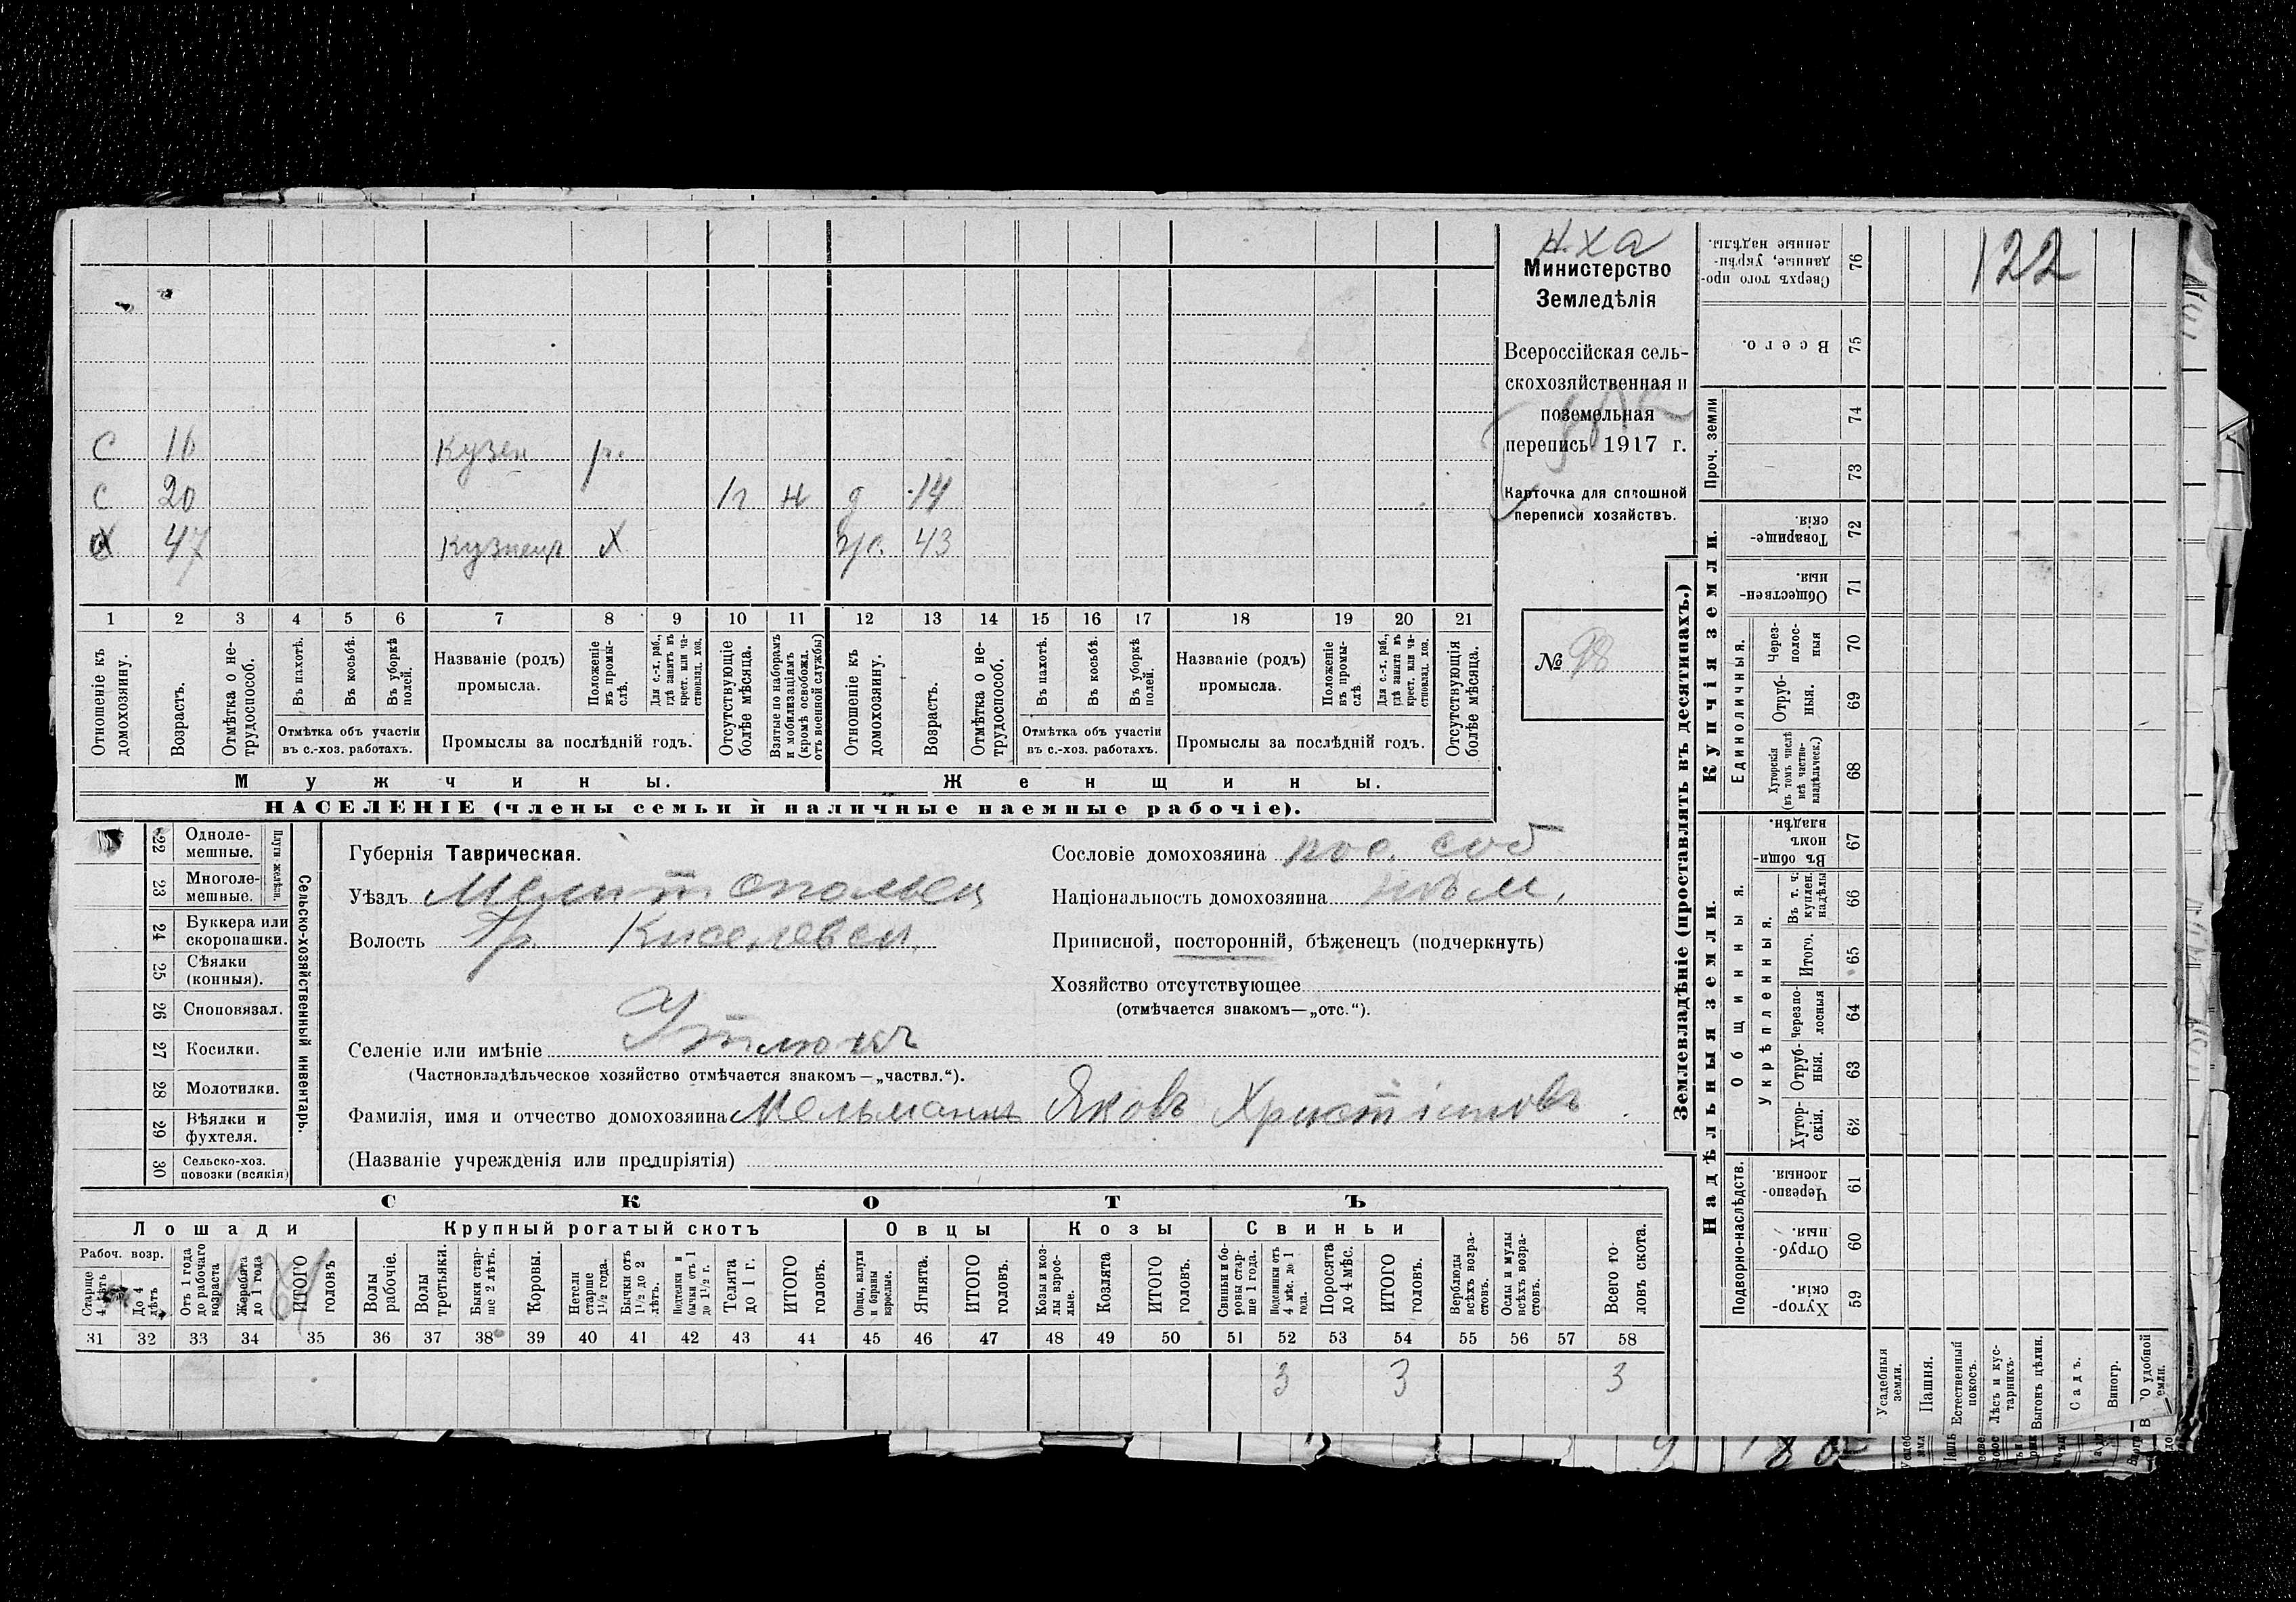 н.х а
122
Министерство
Земледѣлія
Всероссійская сель-
скохозяйственная и
поземельная
перепись 1917 г.
Карточка для сплошной
переписи хозяйствъ.
№ 98
С 16 Кузен р.
С 20 1г н д 14
Х 47 Кузнецъ Х ж. 43
1 2 3 4 5 6 7 8 9 10 11 12 13 14 15 16 17 18 19 20 21
Отношеніе къ домохозяину.
Возрастъ.
Отмѣтка о не-трудоспособ.
Въ пахотѣ.
Въ косьбѣ.
Въ уборкѣ полей.
Отмѣтка объ участіи въ с.-хоз. работахъ.
Названіе (родъ) промысла.
Положеніе въ промы-слѣ.
Для с.-х. раб., гдѣ занятъ въ крест. или ча-стновлад. хоз.
Промыслы за послѣдній годъ.
Отсутствующіе болѣе мѣсяца.
Взятые по наборамъ и мобилизаціямъ (кромѣ освобожд. отъ военной службы)
Отношеніе къ домохозяину.
Возрастъ.
Отмѣтка о не-трудоспособ.
Въ пахотѣ.
Въ косьбѣ.
Въ уборкѣ полей.
Отмѣтка объ участіи въ с.-хоз. работахъ.
Названіе (родъ) промысла.
Положеніе въ промы-слѣ
Для с.-х. раб., гдѣ занята въ крест. или ча-стновлад. хоз.
Промыслы за послѣдній годъ.
Отсутствующія болѣе мѣсяца.
Мужчины.
Женщины.
НАСЕЛЕНІЕ (члены семьи и наличные наемные рабочіе).
22 Одноле-мешные.
23 Многоле-мешные.
Плуги желѣзн.
24 Буккера или скоропашки.
25 Сѣялки (конныя).
26 Сноповязал.
27 Косилки.
28 Молотилки.
29 Вѣялки и фухтеля.
30 Сельско-хоз. повозки (всякія)
Сельско-хозяйственный инвентарь.
Губернія Таврическая.
Уѣздъ Мелитопольск
Волость Гр. Киселевск
Селеніе или имѣніе Утлюкъ
(Частновладѣльческое хозяйство отмѣчается знакомъ—„частвл.“).
Фамилія, имя и отчество домохозяина Мельманъ Яковъ Христіановъ
(Названіе учрежденія или предпріятія)
Сословіе домохозяина пос. соб
Національность домохозяина нѣм.
Приписной, посторонній, бѣженецъ (подчеркнуть)
Хозяйство отсутствующее
(отмѣчается знакомъ—„отс.“).
СКОТЪ
Лошади
Крупный рогатый скотъ
Овцы
Козы
Свиньи
Рабоч. возр.
Старше 4 лѣтъ
До 4 лѣтъ
Отъ 1 года до рабочаго возраста
Жеребята до 1 года
ИТОГО головъ
Волы рабочіе.
Волы третьяки.
Быки стар-ше 2 лѣтъ.
Коровы.
Нетели старше 1½ года.
Бычки отъ 1½ до 2 лѣтъ.
Подтелки и бычки отъ 1 до 1½ г.
Телята до 1 г.
ИТОГО головъ.
Овцы, валухи и бараны взрослые.
Ягнята.
ИТОГО головъ.
Козы и коз-лы взрос-лые.
Козлята
ИТОГО головъ.
Свиньи и бо-ровы стар-ше 1 года.
Подсвинки отъ 4 мѣс. до 1 года.
Поросята до 4 мѣс.
ИТОГО головъ.
Верблюды всѣхъ возра-стовъ.
Ослы и мулы всѣхъ возра-стовъ.
Всего го-ловъ скота.
31 32 33 34 35 36 37 38 39 40 41 42 43 44 45 46 47 48 49 50 51 52 53 54 55 56 57 58
3 3 3
Землевладѣніе (проставлять въ десятинахъ.)
Купчія земли.
Надѣльныя земли.
76 Сверхъ того про-данные, укрѣп-ленные надѣлы.
75 Всего.
Проч. земли
74
73
72 Товарище-скія.
71 Обществен-ныя.
Единоличныя.
70 Через-полос-ныя
69 Отруб-ныя.
68 Хуторскія (въ томъ числѣ всѣ частно-владѣльческ.)
Общинныя.
67 Въ общи-номъ владѣн.
Укрѣпленныя.
66 Въ т. ч. куплен. надѣлы
65 Итого.
64 Черезпо-лосныя
63 Отруб-ныя.
62 Хутор-скія.
Подворно-наслѣдств.
61 Черезпо-лосныя
60 Отруб-ныя.
59 Хутор-скія.
Усадебныя земли.
Пашня.
Естественный покосъ.
Лѣсъ и кус-тарникъ.
Выгонъ цѣлин.
Садъ.
Виногр.